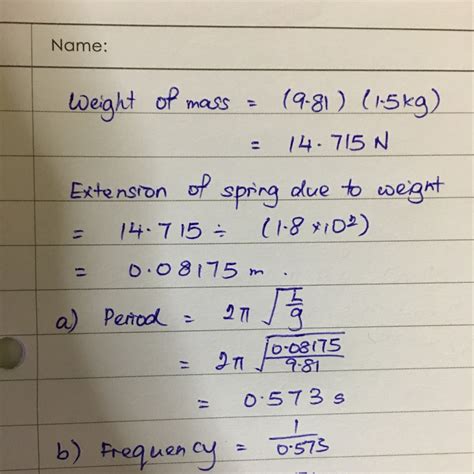 Name:
Weight of mass = (9.81) (1.5kg)
= 14.715 N
Extension of spring due to weight
= 14.715 ÷ (1.8 × 10²)
= 0.08175 m.
a) Period = 2π √(L/g)
= 2π √(0.08175/9.81)
= 0.573 s
b) Frequency = 1/0.573